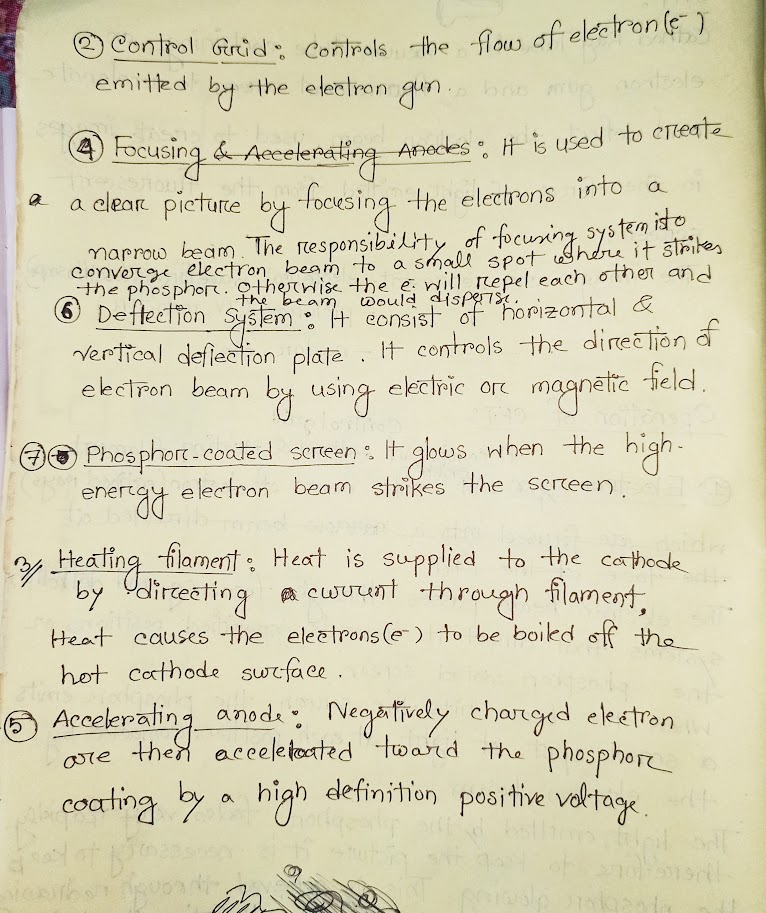 ② Control Grid: Controls the flow of electron (e⁻)
emitted by the electron gun.
④ Focusing & Accelerating Anodes: It is used to create
a a clear picture by focusing the electrons into a
narrow beam. The responsibility of focusing system is to
converge electron beam to a small spot where it strikes
the phosphor. Otherwise the e⁻ will repel each other and
the beam would disperse.
⑥ Deflection System: It consist of horizontal &
vertical deflection plate. It controls the direction of
electron beam by using electric or magnetic field.
⑦ Phosphor-coated screen: It glows when the high-
energy electron beam strikes the screen.
3// Heating filament: Heat is supplied to the cathode
by directing a current through filament,
Heat causes the electrons (e⁻) to be boiled off the
hot cathode surface.
⑤ Accelerating anode: Negatively charged electron
are then accelerated toward the phosphor
coating by a high definition positive voltage.